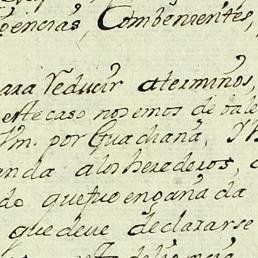 gencias, Combenientes,
para reducir a terminos,
este caso nos emos de bale
Vm. por Guachana,
enda a los herederos,
do que fue engaña da
que deve declararse